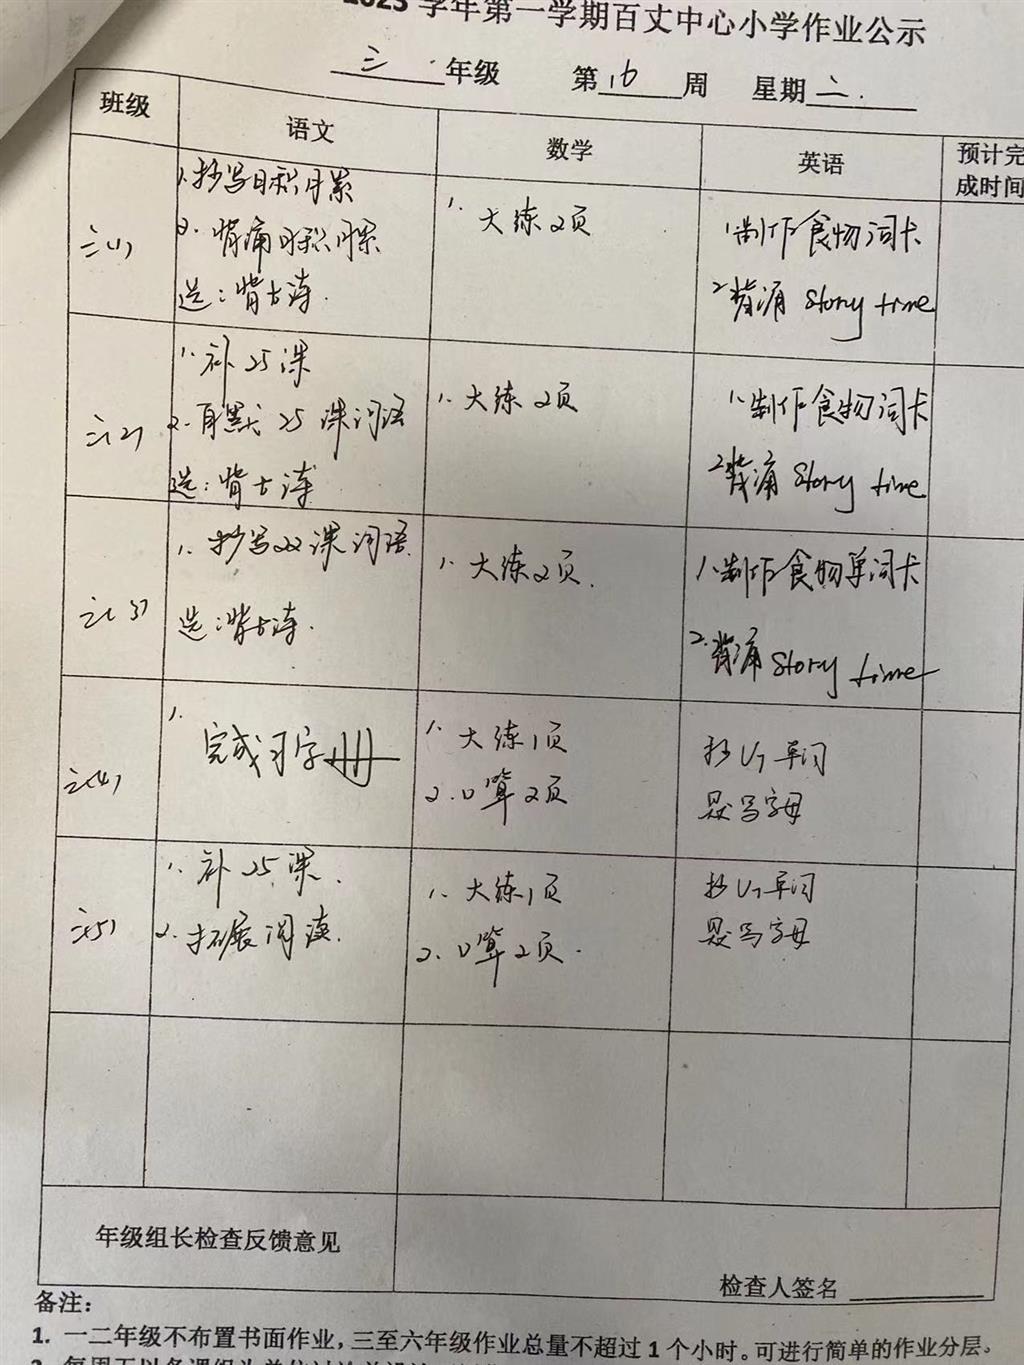 2023 学年第一学期百丈中心小学作业公示
三 年级 第 16 周 星期 二.
班级 语文 数学 英语 预计完
成时间
三(1)
1.抄写日积月累
2.背诵日积月累
选:背古诗.
1.大练2页
1制作食物词卡
2背诵 Story time
三(2)
1.补25课
2.再默25课词语
选:背古诗
1.大练2页
1.制作食物词卡
2背诵 Story time
三(3)
1.抄写22课词语.
选:背古诗.
1.大练2页.
1.制作食物单词卡
2.背诵 Story time
三(4)
1.完成习字册
1.大练1页
2.口算2页
抄U7单词
默写字母
三(5)
1.补25课.
2.拓展阅读.
1.大练1页
2.口算2页.
抄U7单词
默写字母
年级组长检查反馈意见
检查人签名
备注:
1. 一二年级不布置书面作业,三至六年级作业总量不超过1个小时。可进行简单的作业分层。